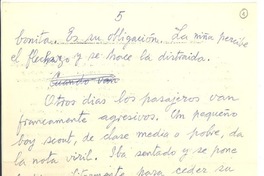 5
bonita. Es su obligación. La niña percibe
el flechazo y se hace la distraída.
Cuando van
Otros días los pasajeros van
francamente agresivos. Un pequeño
boy scout, de clase media o pobre, da
la nota viril. Iba sentado y se pone
para ceder su